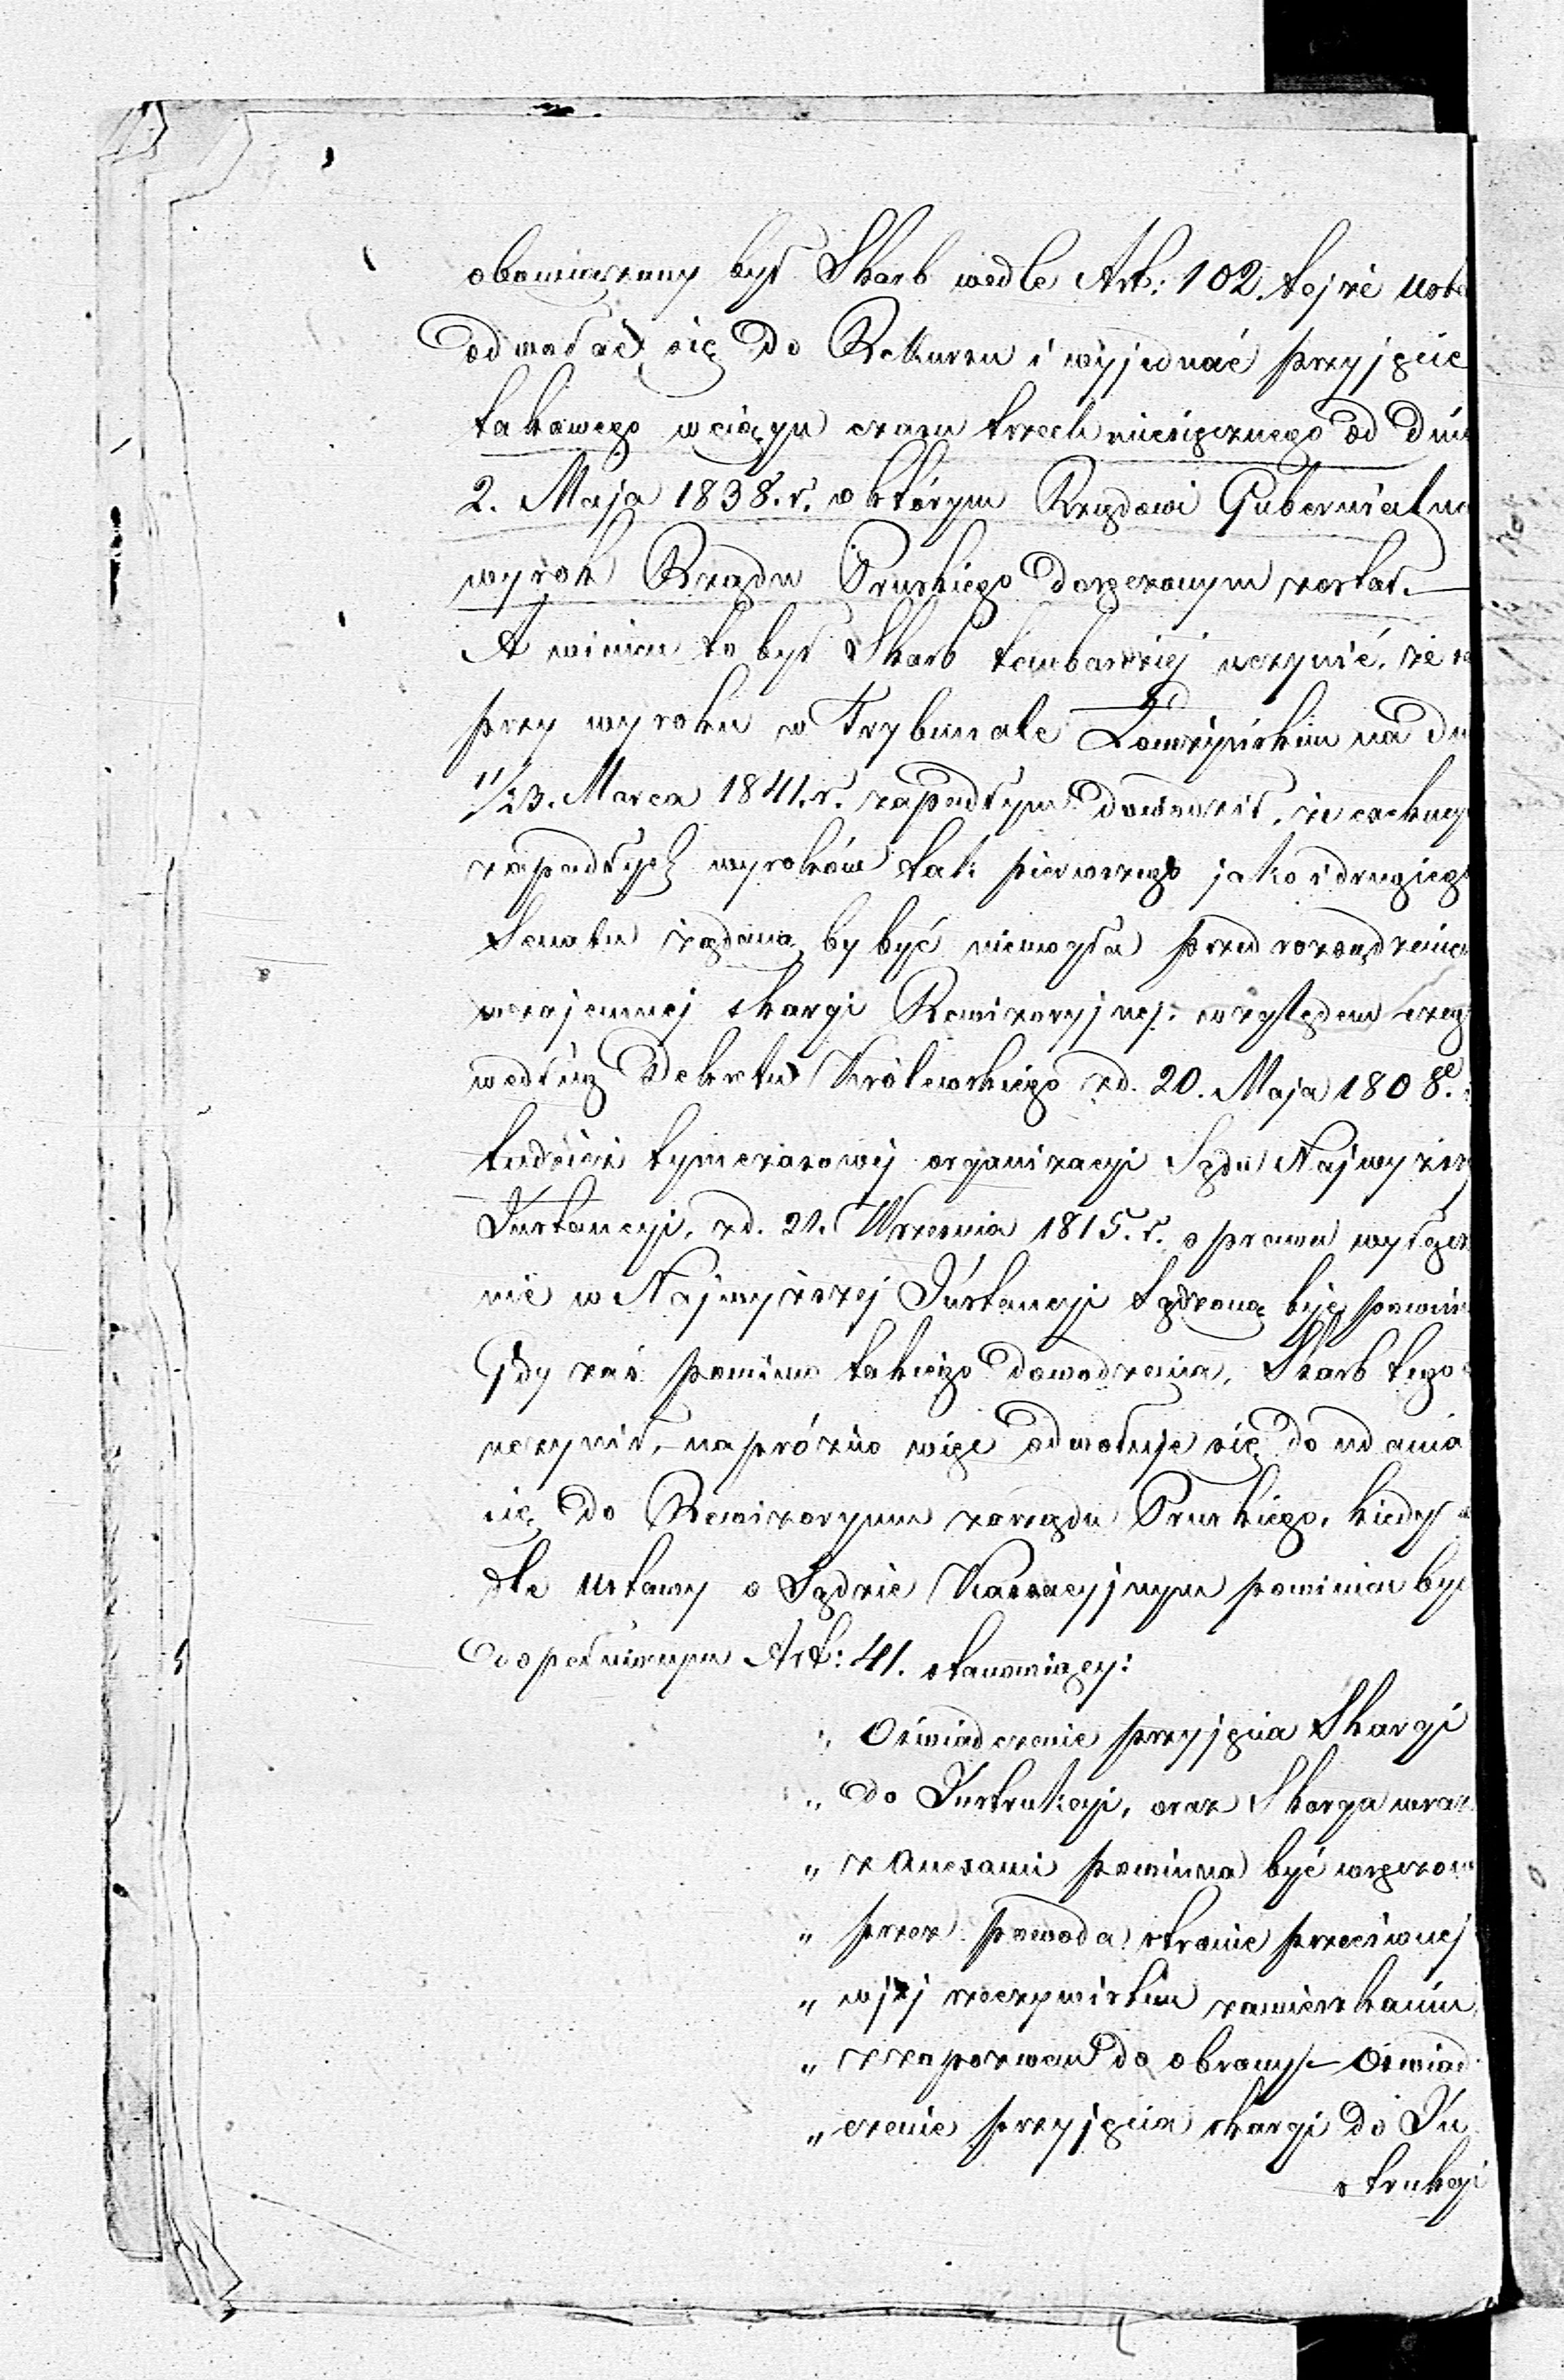 obowiązany był Skarb wedle Art: 102. tejże Usta
odwołać się do Rekursu i wyjednać przyjęcie
takowego wciągu czasu trzech miesięcznego od dnia
2. Maja 1838. r. w którym Rządowi Gubernialne
wyrok Rządu Pruskiego doręczonym został.—
A winien to był Skarb tembardziej uczynić, że
przy wyroku w Trybunale Łomżyńskim na dn
11/23. Marca 1841. r. zapadłym dowodził, że
zapadłych wyroków tak pierwszego jako i drugiego
Senatu żądaną by być niemogła przed rozsądzenie
wzajemnej skargi Rewizoryjnej: względem czeg
według Dekretu Królewskiego zd. 20. Maja 1808.
tudzież tymczasowej organizacyi Sądu Najwyższej
Instancyi, zd. 21. Września 1815. r. sprawa wyłącz
nie w Najwyższej Instancyi sądzoną być powin
Gdy zaś pomimo takiego dowodzenia, Skarb tego
uczynił,— napróżno więc odwołuje się do udania
się do Rewizoryum zarządu Pruskiego, kiedy
dle Ustawy o Sądzie Kassacyjnym powinien być
dopełnionym Art: 41. stanowiący:
„ Oświadczenie przyjęcia Skargi
„ do Instrukcyi, oraz Skarga wraz
„ z Anexami powinna być wręczon
„ przez powoda stronie przeciwnej
„ wjej rzeczywistem zamieszkaniu,
„ zzapozwem do obrony — Oświad
„ czenie przyjęcia skargi do In
strukcyi